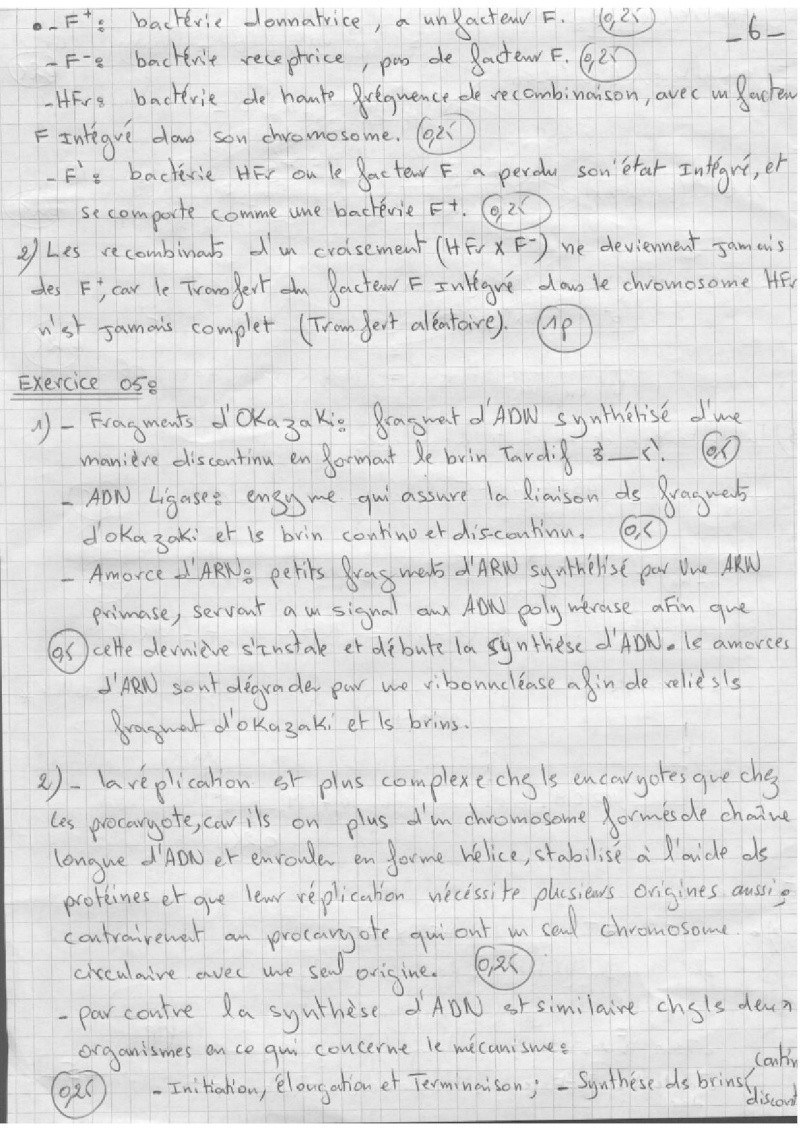 - F⁺: bactérie donnatrice, a un facteur F. (0,25)
_6_
- F⁻: bactérie receptrice, pas de facteur F. (0,25)
- HFr: bactérie de haute fréquence de recombinaison, avec un facteu
F Intégré dans son chromosome. (0,25)
- F': bactérie HFr ou le facteur F a perdu son état Intégré, et
se comporte comme une bactérie F⁺. (0,25)
2) Les recombinats d'un croisement (HFr X F⁻) ne deviennent Jamais
des F⁺, car le Transfert du facteur F Intégré dans le chromosome HFr
n'st Jamais complet (Transfert aléatoire). (1p)
Exercice 05:
1) - Fragments d'OKazaki: fragmet d'ADN synthétisé d'une
manière discontinu en formant le brin Tardif 3'—5'. (0,5)
- ADN Ligase: enzyme qui assure la liaison ds fragmets
d'okazaki et ls brin continu et discontinu. (0,5)
- Amorce d'ARN: petits fragmets d'ARN synthétisé par Une ARN
primase, servant a un signal aux ADN polymérase afin que
(0,5) cette dernière s'Instale et débute la synthèse d'ADN. le amorces
d'ARN sont dégrader par une ribonucléase afin de reliés ls
fragmet d'okazaki et ls brins.
2) - la réplication st plus complexe chez ls eucaryotes que chez
les procaryote, car ils on plus d'un chromosome formés de chaîne
longue d'ADN et enrouler en forme hélice, stabilisé à l'aide ds
protéines et que leur réplication nécéssite plusieurs origines aussi;
contrairemet au procaryote qui ont un seul chromosome
circulaire avec une seul origine. (0,25)
- par contre la synthèse d'ADN st similaire chz ls deux
organismes en ce qui concerne le mécanisme:
(0,25) - Initiation, élongation et Terminaison; - Synthèse ds brins contin
discont